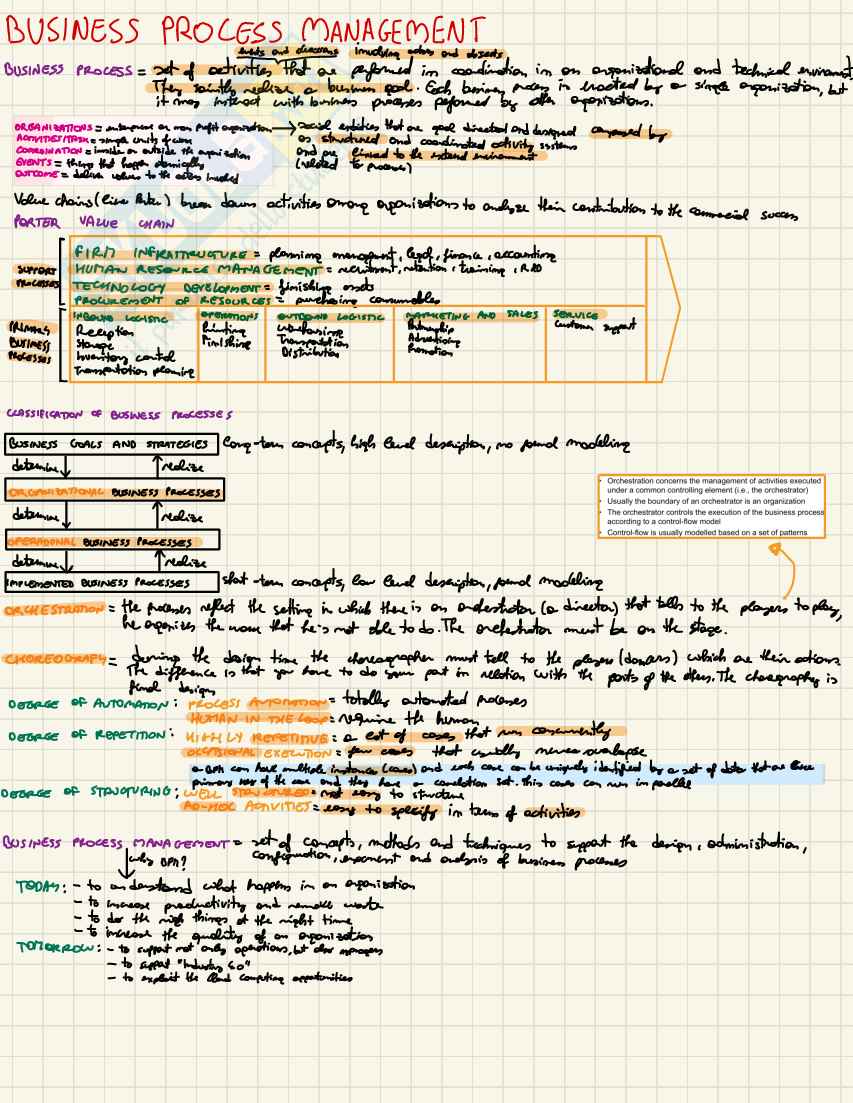 BUSINESS PROCESS MANAGEMENT
events and decisions involving actors and objects
BUSINESS PROCESS = set of activities that are performed in coordination in an organizational and technical environment.
They jointly realize a business goal. Each business process is enacted by a single organization, but
it may interact with business processes performed by other organizations.
ORGANIZATIONS = enterprise or non profit organization → social entities that are goal directed and designed composed by
ACTIVITIES/TASK = simple units of work as structured and coordinated activity systems
COORDINATION = inside or outside the organization and are linked to the external environment
EVENTS = things that happen atomically (related to processes)
OUTCOME = deliver values to the actors involved
Value chains (like Porter) break down activities among organizations to analyze their contribution to the commercial success
PORTER VALUE CHAIN
SUPPORT PROCESSES
FIRM INFRASTRUCTURE = planning managment, legal, finance, accounting
HUMAN RESOURCE MANAGEMENT = recruitment, retention, training, R&D
TECHNOLOGY DEVELOPMENT = finishing assets
PROCUREMENT OF RESOURCES = purchasing consumables
PRIMARY BUSINESS PROCESSES
INBOUND LOGISTIC
Reception
Storage
Inventory control
Transportation planning
OPERATIONS
Printing
Finishing
OUTBOUND LOGISTIC
Warehousing
Transportation
Distribution
MARKETING AND SALES
Partnership
Advertising
Promotion
SERVICE
Customer support
CLASSIFICATION OF BUSINESS PROCESSES
BUSINESS GOALS AND STRATEGIES long-term concepts, high level description, no formal modeling
determine ↓ ↑ realize
ORGANIZATIONAL BUSINESS PROCESSES
determine ↓ ↑ realize
OPERATIONAL BUSINESS PROCESSES
determine ↓ ↑ realize
IMPLEMENTED BUSINESS PROCESSES short-term concepts, low level description, formal modeling
• Orchestration concerns the management of activities executed
under a common controlling element (i.e., the orchestrator)
• Usually the boundary of an orchestrator is an organization
• The orchestrator controls the execution of the business process
according to a control-flow model
• Control-flow is usually modelled based on a set of patterns
ORCHESTRATION = the processes reflect the setting in which there is an orchestrator (a director) that tells to the players to play,
he organizes the work that he is not able to do. The orchestrator must be on the stage.
CHOREOGRAFY = during the design time the choreographer must tell to the players (dancers) which are their actions.
The difference is that you have to do your part in relation with the parts of the others. The choreography is
final design
DEGREE OF AUTOMATION: PROCESS AUTOMATION = totally automated processes
HUMAN IN THE LOOP = require the human
DEGREE OF REPETITION: HIGHLY REPETITIVE = a lot of cases that run concurrently
OCCASIONAL EXECUTION = few cases that usually never overlapse
a BPM can have multiple instances (cases) and each case can be uniquely identified by a set of data that are like
primary key of the case and they have a correlation set. this cases can run in parallel
DEGREE OF STRUCTURING: WELL STRUCTURED = not easy to structure
AD-HOC ACTIVITIES = easy to specify in terms of activities
BUSINESS PROCESS MANAGEMENT = set of concepts, methods and techniques to support the design, administration,
configuration, enactment and analysis of business processes
why BPM?
TODAY: - to understand what happens in an organization
- to increase productivity and remote works
- to do the right things at the right time
- to increase the quality of an organization
TOMORROW: - to support not only operations, but also managers
- to support "Industry 4.0"
- to exploit the Cloud Computing opportunities